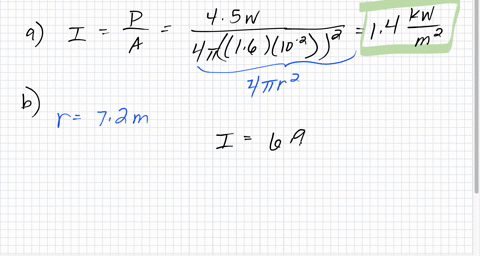 a) I = P/A = 4.5W / 4π((1.6)(10⁻²))² = 1.4 kW/m²
4πr²
b)
r = 7.2m
I = 69